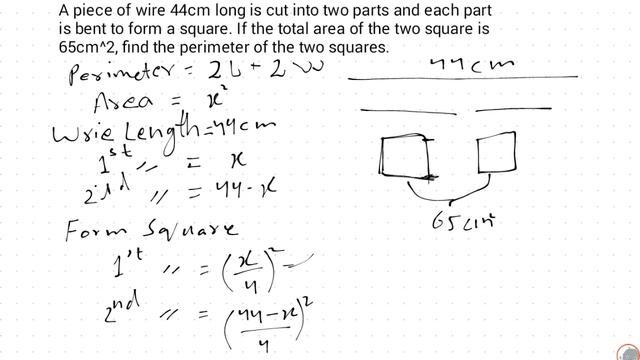 A piece of wire 44cm long is cut into two parts and each part
is bent to form a square. If the total area of the two square is
65cm^2, find the perimeter of the two squares.
Perimeter = 2L + 2W
Area = x²
Wrie Length = 44cm
1st 〃 = x
2nd 〃 = 44-x
Form Square
1st 〃 = (x/4)²
2nd 〃 = (44-x/4)²
44cm
65cm²